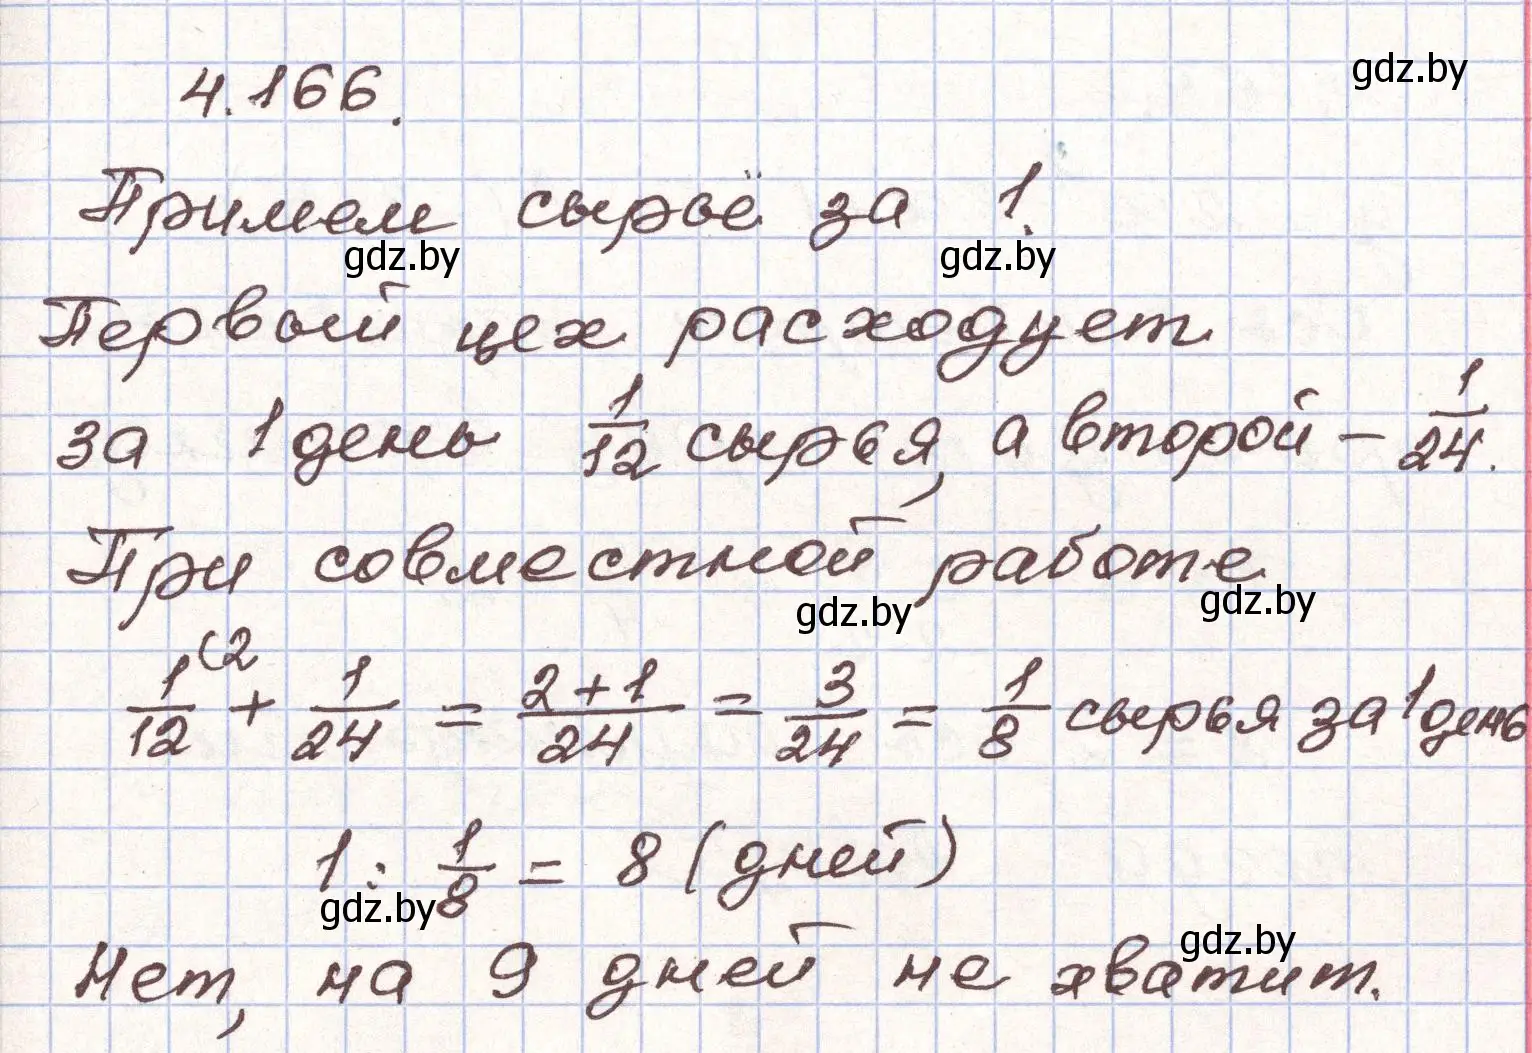 gdz.by
4.166.
Примем сырьё за 1.
gdz.by gdz.by
Первый цех расходует
за 1 день 1/12 сырья, а второй – 1/24.
При совместной работе
gdz.by gdz.by
1/12 (2 + 1/24 = 2+1/24 = 3/24 = 1/8 сырья за 1 день
1 : 1/8 = 8 (дней)
gdz.by
gdz.by
Нет, на 9 дней не хватит.